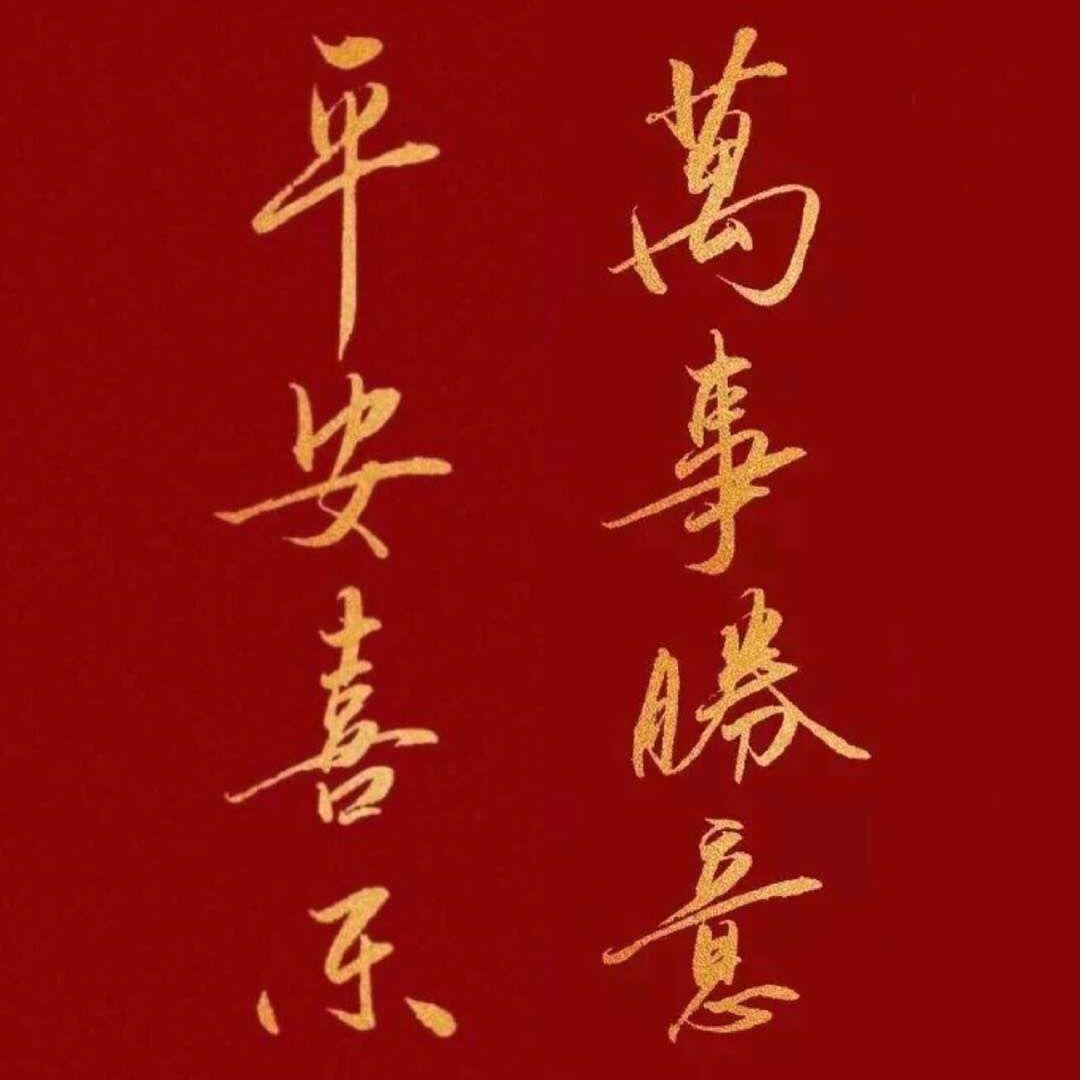 萬事勝意
平安喜乐